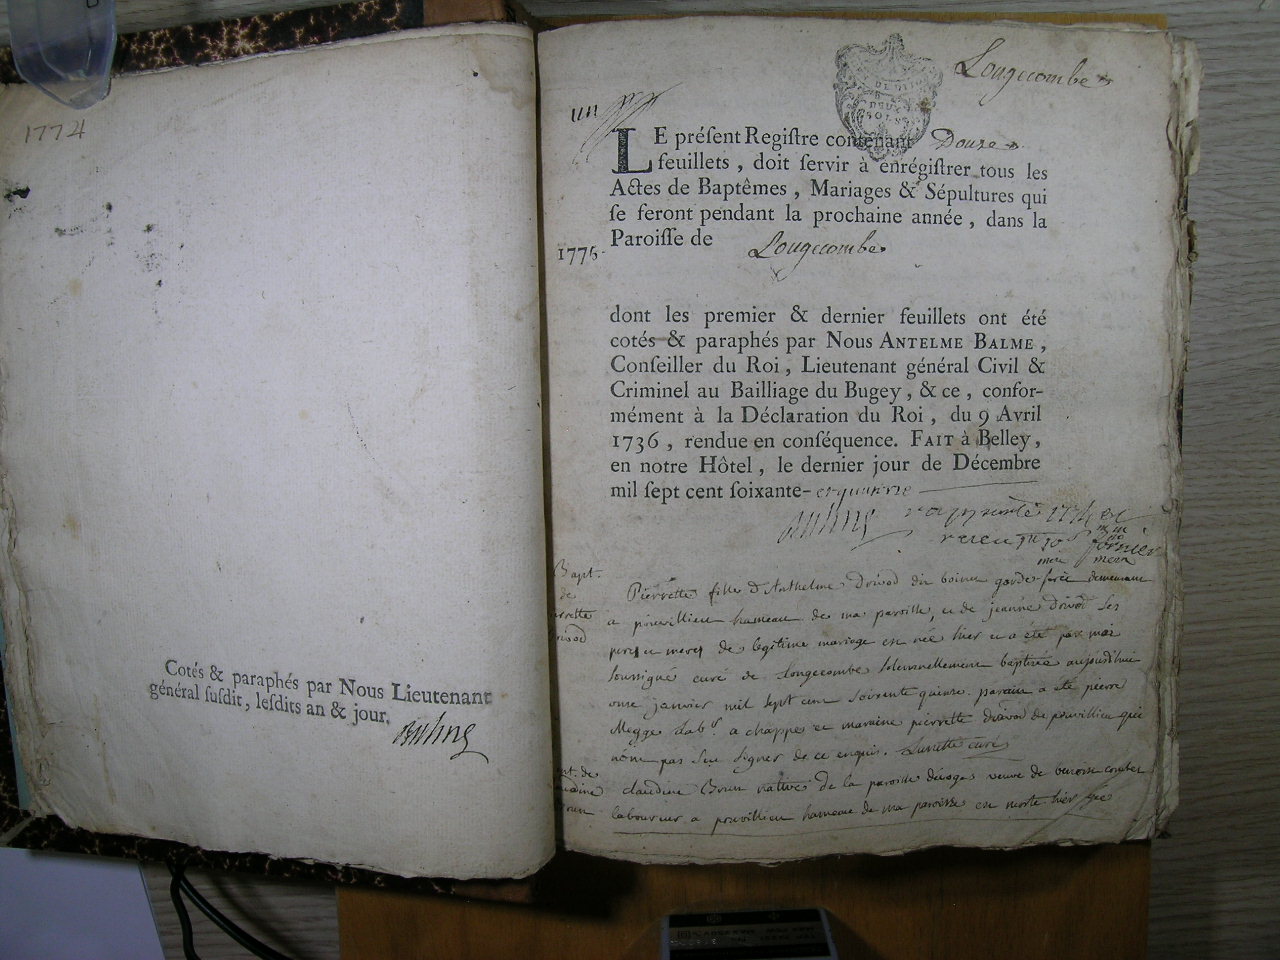 1774
Cotés & paraphés par Nous Lieutenant
général susdit, lesdits an & jour.
Longecombe
DEUX
SOLS
un
LE préſent Regiſtre contenant Douze
feuillets, doit ſervir à enrégiſtrer tous les
Actes de Baptêmes, Mariages & Sépultures qui
ſe feront pendant la prochaine année, dans la
Paroiſſe de Longecombe
1775.
dont les premier & dernier feuillets ont été
cotés & paraphés par Nous ANTELME BALME,
Conſeiller du Roi, Lieutenant général Civil &
Criminel au Bailliage du Bugey, & ce, confor-
mément à la Déclaration du Roi, du 9 Avril
1736, rendue en conſéquence. FAIT à Belley,
en notre Hôtel, le dernier jour de Décembre
mil ſept cent ſoixante- et quatorze
Bapt.
de
Pierrette fille d'Anthelme Drivod dit boiron garde-forêt demeurant
a pouvillieu hameau de ma paroisse, et de jeanne Drivod ses
pere et mere de legitime mariage est née hier et a été par moi
soussigné curé de Longecombe solemnellement baptisée aujourd'huy
onze janvier mil sept cent soixante quinze. parrain a été pierre
Megge Lab.r a chappe et maraine pierrette drivod de pouvillieu qui
n'ont pas seu signer de ce enquis. curé
claudine Brun native de la paroisse veuve de benoist
laboureur a pouvillieu hameau de ma paroisse est morte hier